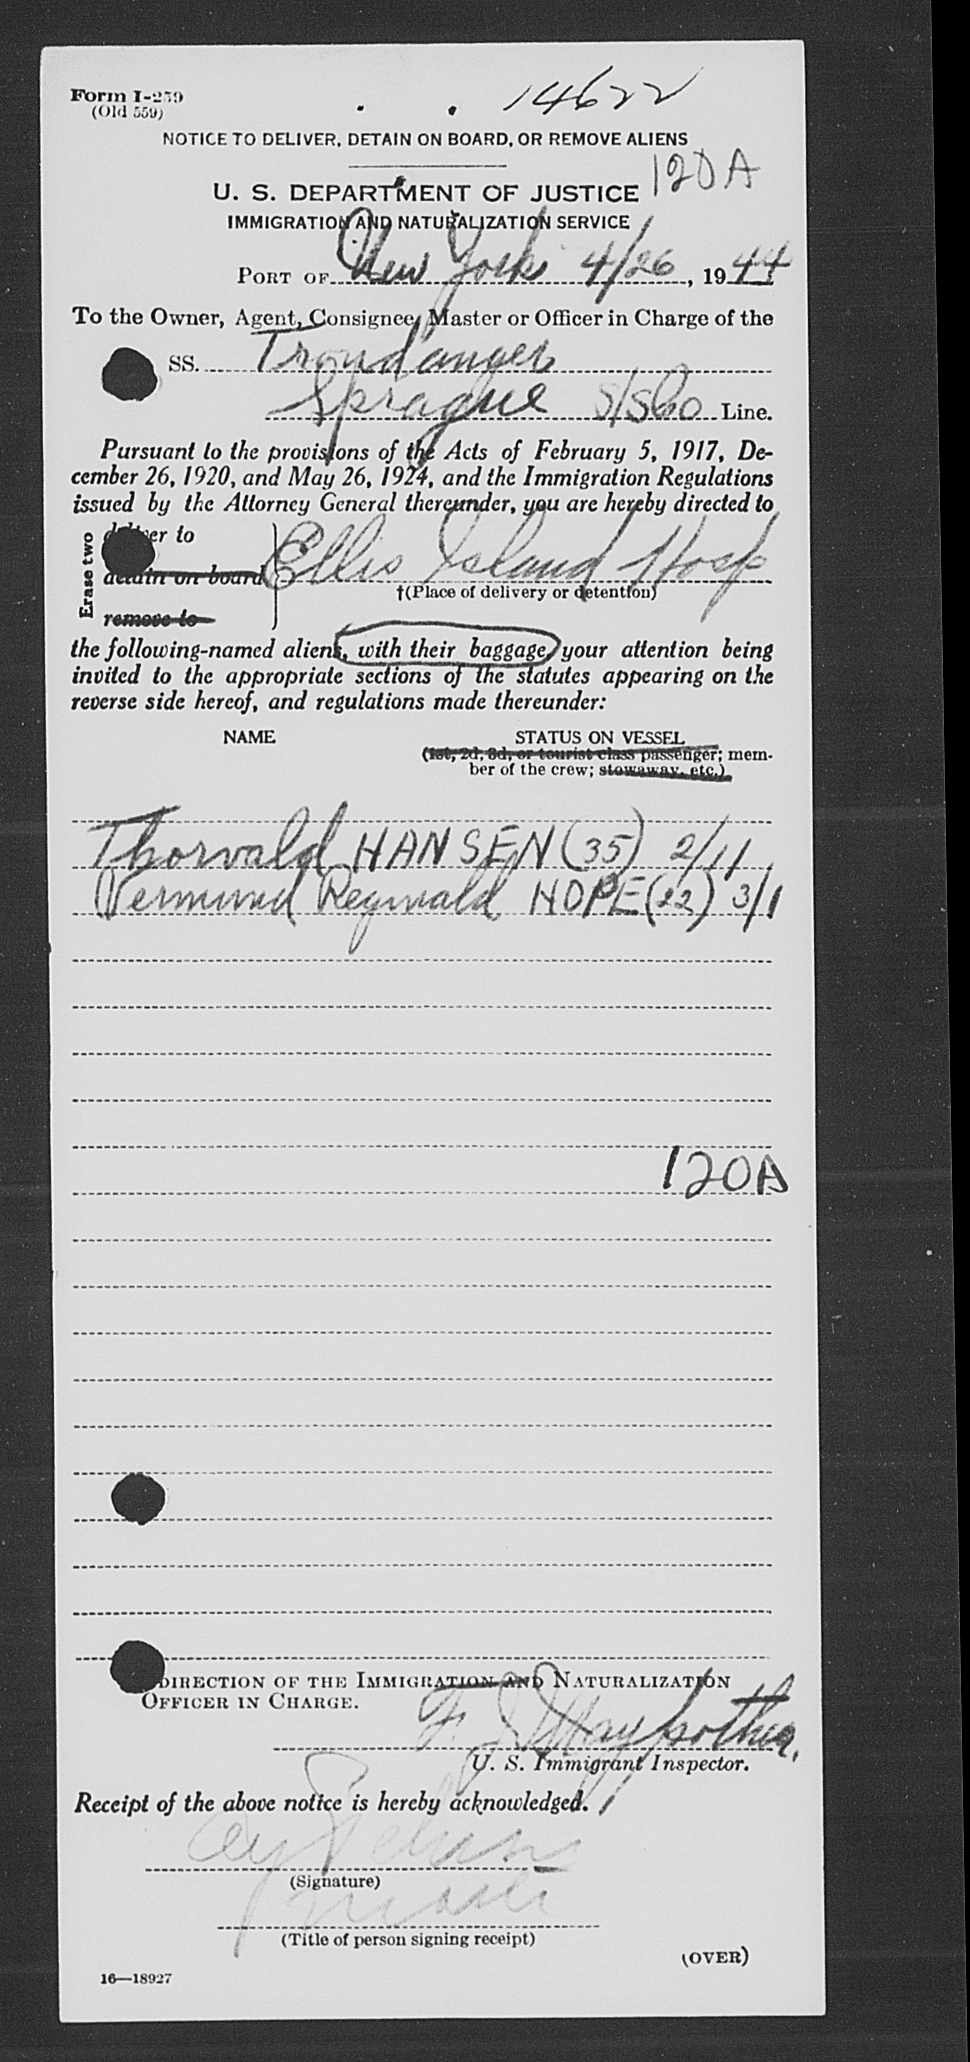 Form I-259
(Old 559)
14622
NOTICE TO DELIVER, DETAIN ON BOARD, OR REMOVE ALIENS
120A
U. S. DEPARTMENT OF JUSTICE
IMMIGRATION AND NATURALIZATION SERVICE
PORT OF New York 4/26, 1944
To the Owner, Agent, Consignee, Master or Officer in Charge of the
SS. Trondanger
Sprague S/S Co Line.
Pursuant to the provisions of the Acts of February 5, 1917, De-
cember 26, 1920, and May 26, 1924, and the Immigration Regulations
issued by the Attorney General thereunder, you are hereby directed to
Erase two
deliver to
detain on board
remove to
Ellis Island Hosp
†(Place of delivery or detention)
the following-named aliens, with their baggage, your attention being
invited to the appropriate sections of the statutes appearing on the
reverse side hereof, and regulations made thereunder:
NAME STATUS ON VESSEL
(1st, 2d, 3d, or tourist class passenger; mem-
ber of the crew; stowaway, etc.)
Thorvald HANSEN (35) 2/11
Reginald HOPE (22) 3/1
120A
DIRECTION OF THE IMMIGRATION AND NATURALIZATION
OFFICER IN CHARGE.
F. J.
U. S. Immigrant Inspector.
Receipt of the above notice is hereby acknowledged.
(Signature)
(Title of person signing receipt)
(OVER)
16—18927